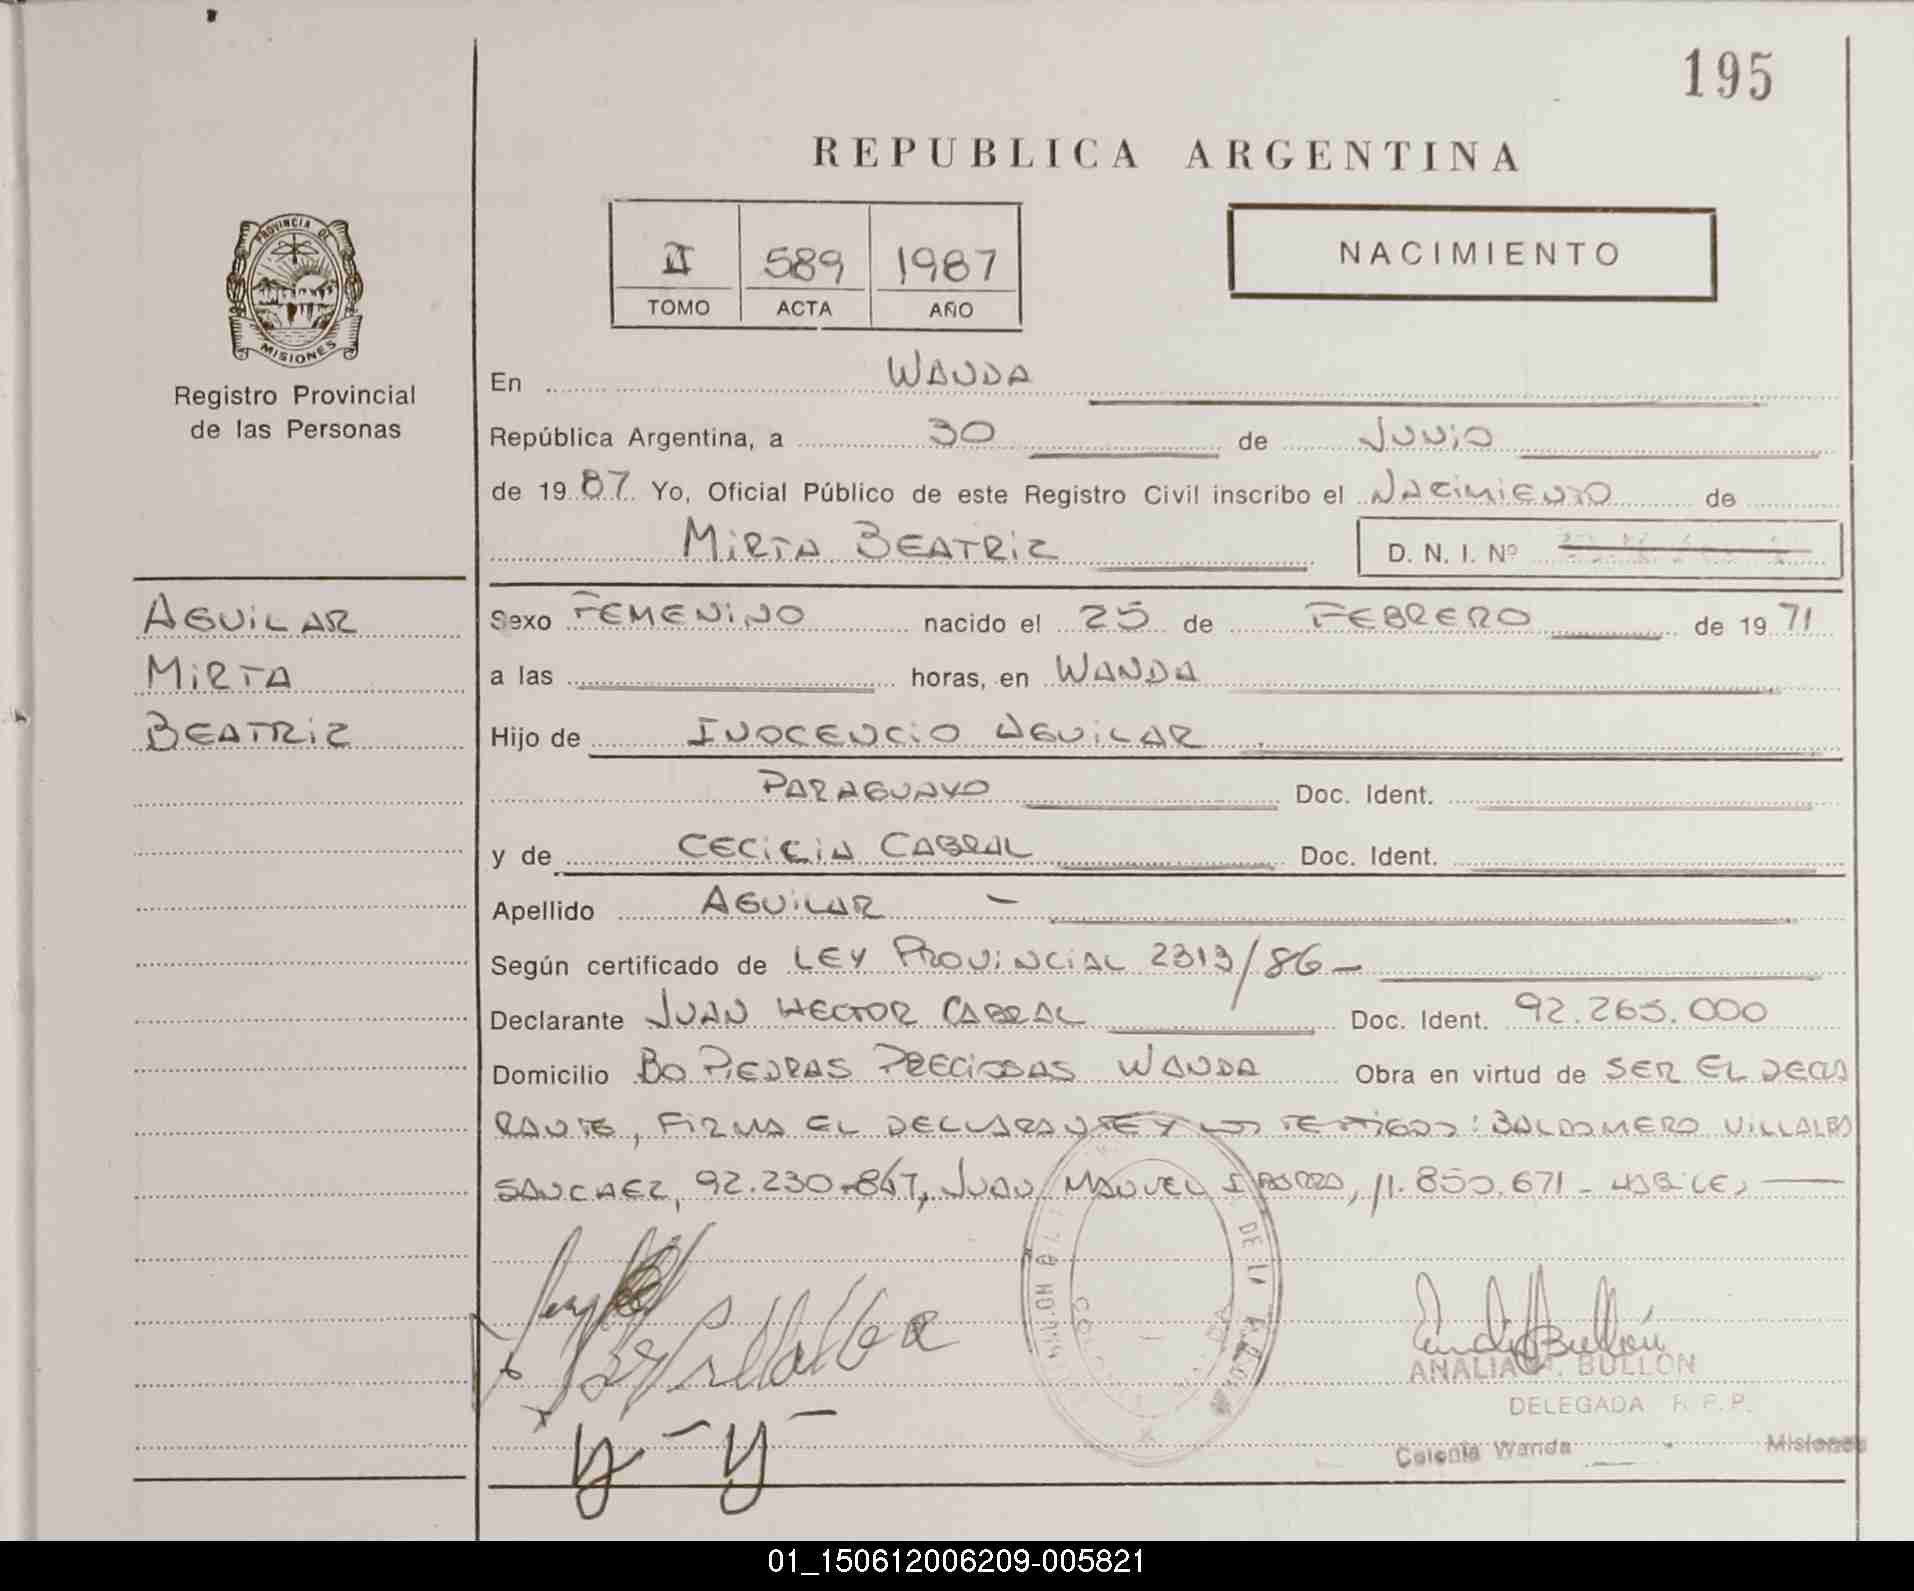 195
REPUBLICA ARGENTINA
II 589 1987
TOMO ACTA AÑO
NACIMIENTO
PROVINCIA DE
MISIONES
Registro Provincial
de las Personas
En WANDA
República Argentina, a 30 de JUNIO
de 1987 Yo, Oficial Público de este Registro Civil inscribo el NACIMIENTO de
MIRTA BEATRIZ D. N. I. Nº
AGUILAR
MIRTA
BEATRIZ
Sexo FEMENINO nacido el 25 de FEBRERO de 1971
a las horas, en WANDA
Hijo de INOCENCIO AGUILAR
PARAGUAYO Doc. Ident.
y de CECILIA CABRAL Doc. Ident.
Apellido AGUILAR -
Según certificado de LEY PROVINCIAL 2313/86-
Declarante JUAN HECTOR CABRAL Doc. Ident. 92.265.000
Domicilio Bo PIEDRAS PRECIOSAS WANDA Obra en virtud de SER EL DECLA
RANTE, FIRMA EL DECLARANTE Y LOS TESTIGOS: BALDOMERO VILLALBA
SANCHEZ, 92.230.847, JUAN MANUEL 11.850.671 - HABILES
Villalba
ANALIA BULLON
DELEGADA R.P.P.
Colonia Wanda Misiones
01_150612006209-005821